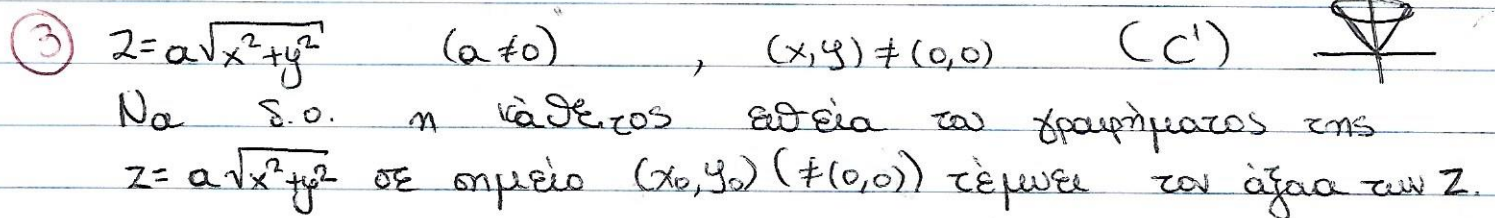 ③ z=a√(x²+y²) (a≠0) , (x,y)≠(0,0) (C¹)
Να δ.ο. η κάθετος ευθεία του γραφήματος της
z=a√(x²+y²) σε σημείο (x₀,y₀) (≠(0,0)) τέμνει τον άξονα των z.